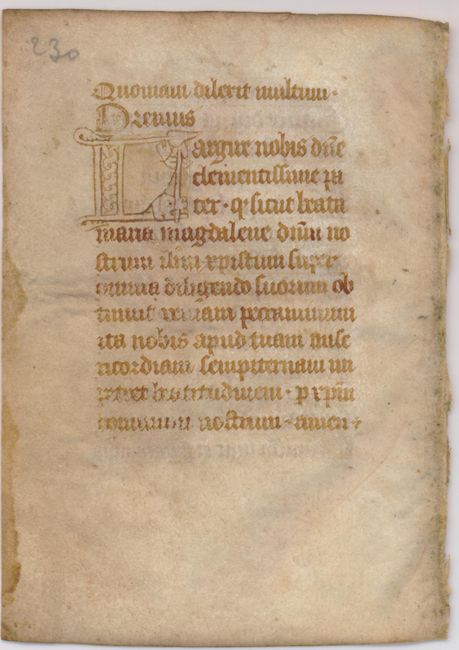 230
Quoniam dilexit multum.
Oremus
Largire nobis dñe
clementissime pa
ter. q̃ sicut beata
maria magdalene dñm no
strum ihm xpistum super
omnia diligendo suorum ob
tinuit veniam peccaminum
ita nobis apud tuam mise
ricordiam sempiternam im
petret beatitudinem. p xpm̃
dominum nostrum. amen.